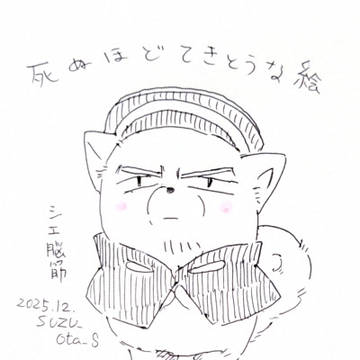 死ぬほどてきとうな絵
シエ脳筋
2025.12.
SUZU_
Ota_S